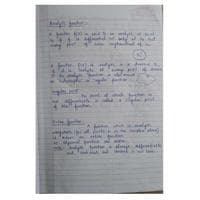 Analytic function:-
A function f(z) is said to be analytic at point
z₀ if f is differentiable not only at z₀ but
every point of some neighbourhood of z₀.
A function f(z) is analytic in a domain
if it is analytic at every point of
An analytic function is also known
as holomorphic or regular function
Regular point:-
The point at which function is
differentiable is called a regular point
of the function.
Entire function:-
A function which is analytic
everywhere (for all points z in the complex plane)
is known as entire function.
Polynomial function are entire.
Analytic function is always differentiable
and continuous but converse is not true.